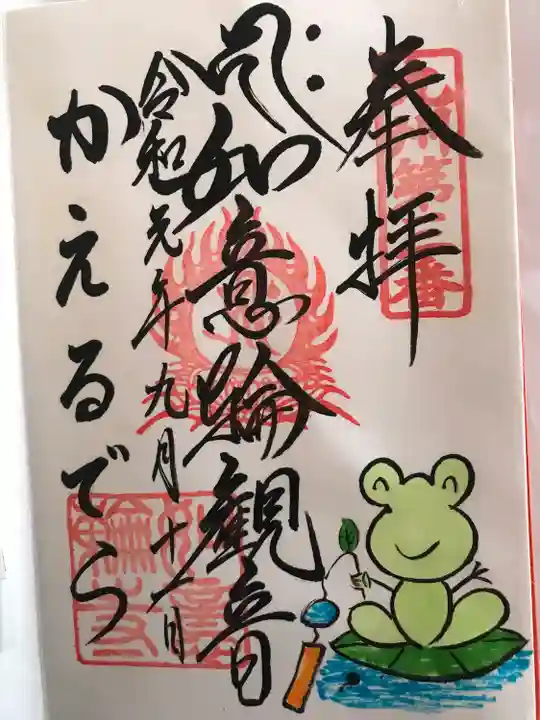 奉拝
如意輪観音
令和元年九月十一日
かえるでら